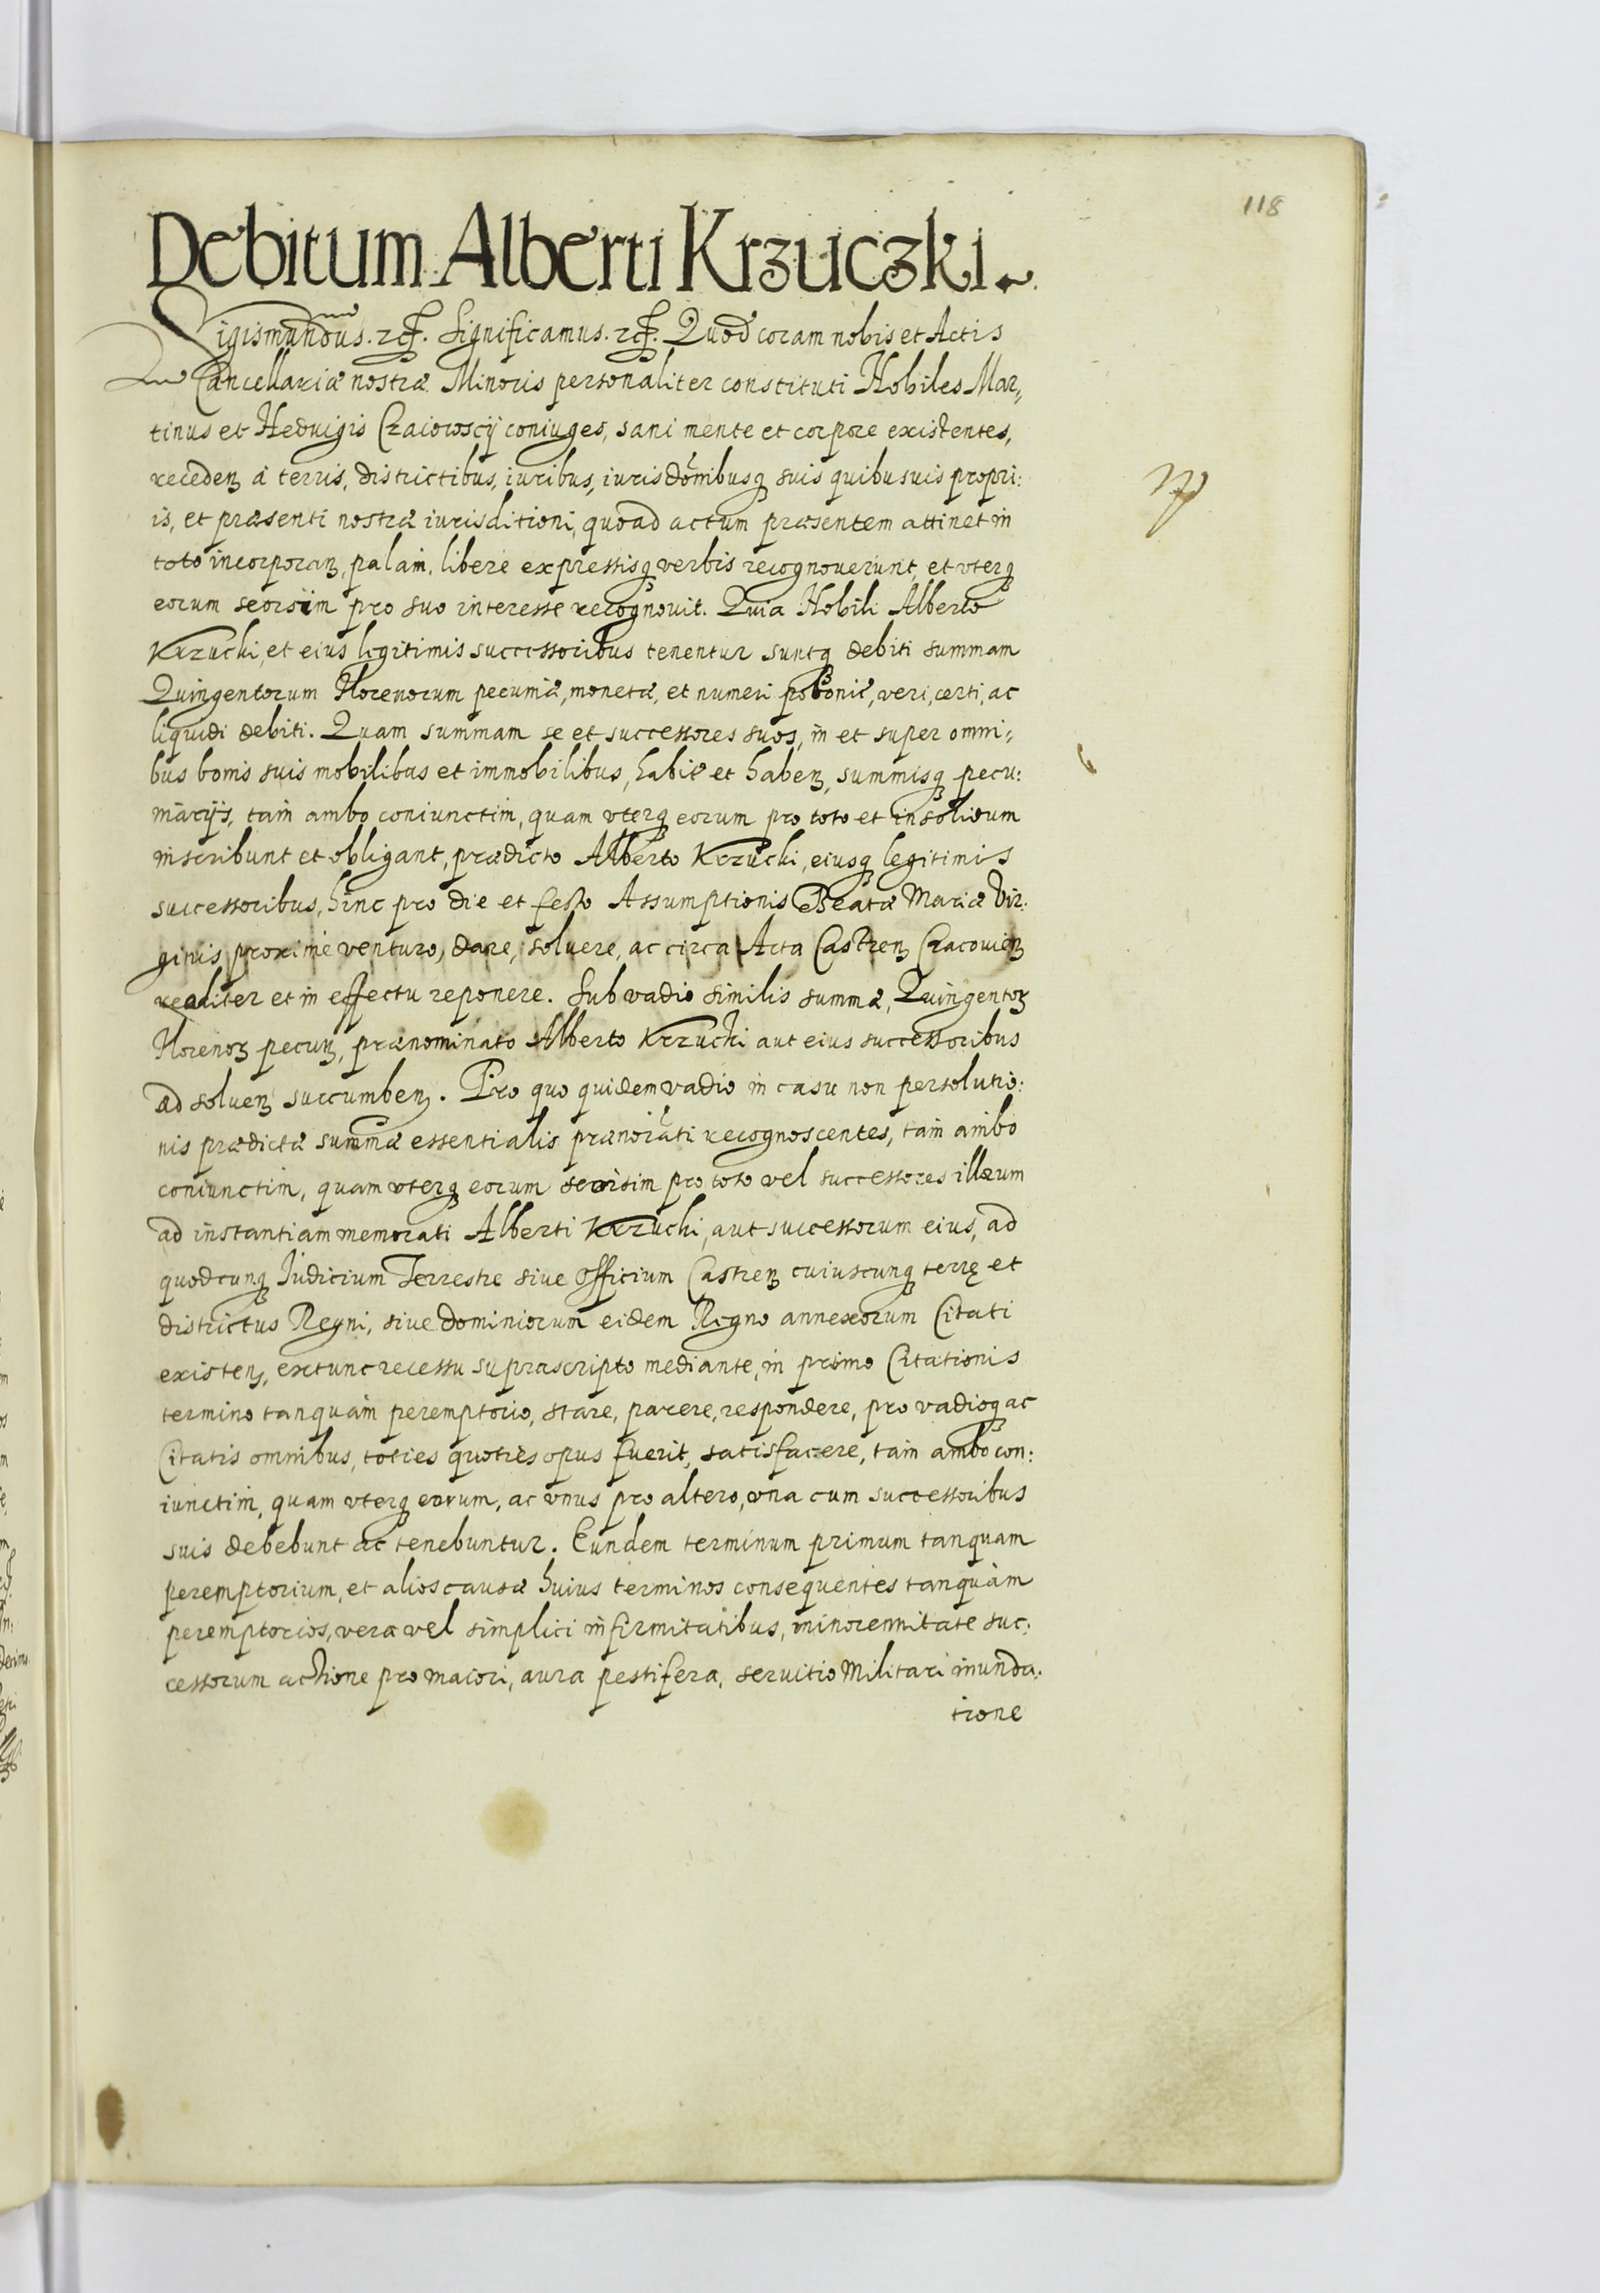 118
Debitum Alberti Krzuczki.
Sigismundus. etc. Significamus. etc. Quod coram nobis et Actis
Cancellariæ nostræ Minoris personaliter constituti Nobiles Mar„
tinus et Heduigis Czaiowscÿ coniuges, sani mente et corpore existentes,
receden̄ a terris, districtibus, iuribus, iurisdōnibusq suis quibusuis propri:
is, et præsenti nostræ iurisditioni, quoad actum præsentem attinet in
toto incorporan̄, palam, libere expressisq verbis recognouerunt, et vterq
eorum seorsim pro suo interesse recognouit. Quia Nobili Alberto
Krzucki, et eius legitimis successoribus tenentur suntq debiti summam
Quingentorum florenorum pecuniæ, monetæ, et numeri polonic̄, veri, certi, ac
liquidi debiti. Quam summam se et successores suos, in et super omni„
bus bonis suis mobilibus et immobilibus, habit̄ et haben̄, summisq pecu:
niarÿs, tam ambo coniunctim, quam vterq eorum pro toto et insolidum
inscribunt et obligant, prædicto Alberto Krzucki, eiusq legitimis
successoribus, hinc pro die et festo Assumptionis Beatæ Mariæ Vir:
ginis proxime venturo, dare, soluere, ac circa Acta Castren̄ Cracouien̄
realiter et in effectu reponere. Sub vadio similis summæ, Quingentoꝝ
florenoꝝ pecun̄, prænominato Alberto Krzucki aut eius successoribus
ad soluen̄ succumben̄. Pro quo quidem vadio in casu non persolutio:
nis prædictæ summæ essentialis prænoīati recognoscentes, tam ambo
coniunctim, quam vterq eorum seorsim pro toto vel successores illorum
ad instantiam memorati Alberti Krzucki, aut successorum eius, ad
quodcunq Iudicium Terrestre siue Officium Castren̄ cuiuscunq terrę et
districtus Regni, siue dominiorum eidem Regno annexorum Citati
existen̄, extunc recessu suprascripto mediante, in primo Citationis
termino tanquam peremptorio, stare, parere, respondere, pro vadioq ac
Citatis omnibus, toties quoties opus fuerit, satisfacere, tam ambo con:
iunctim, quam vterq eorum, ac vnus pro altero, vna cum successoribus
suis debebunt ac tenebuntur. Eundem terminum primum tanquam
peremptorium, et alios causæ huius terminos consequentes tanquam
peremptorios, vera vel simplici infirmitatibus, minorennitate suc:
cessorum actione pro maiori, aura pestifera, seruitio Militari inunda:
tione